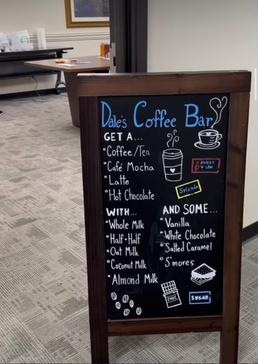 Dale's Coffee Bar
GET A...
*Coffee/Tea
*Café Mocha
*Latte
*Hot Chocolate
SWEET
N LOW
Splenda
WITH...
*Whole Milk
*Half-Half
*Oat Milk
*Coconut Milk
*Almond Milk
AND SOME...
*Vanilla
*White Chocolate
*Salted Caramel
*S'mores
SUGAR